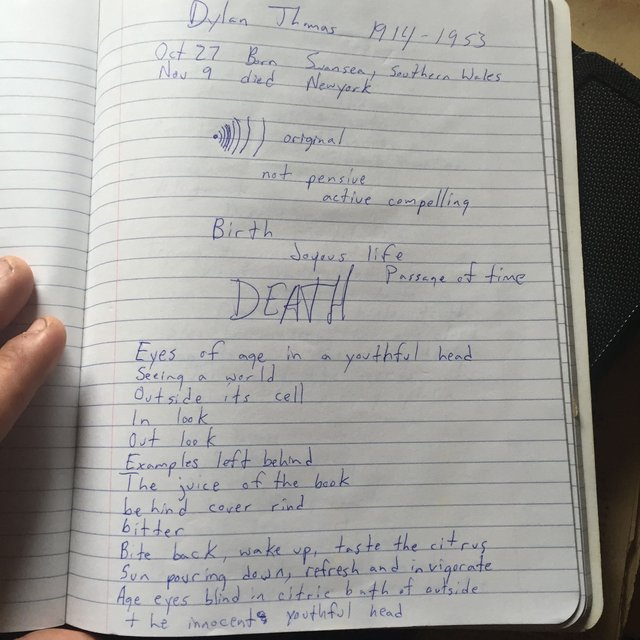 Dylan Thomas 1914-1953
Oct 27 Born Swansea, Southern Wales
Nov 9 died Newyork
original
not pensive
active compelling
Birth
Joyous life
Passage of time
DEATH
Eyes of age in a youthful head
Seeing a world
Outside its cell
In look
Out look
Examples left behind
The juice of the book
behind cover rind
bitter
Bite back, wake up, taste the citrus
Sun pouring down, refresh and invigorate
Age eyes blind in citric bath of outside
the innocents youthful head